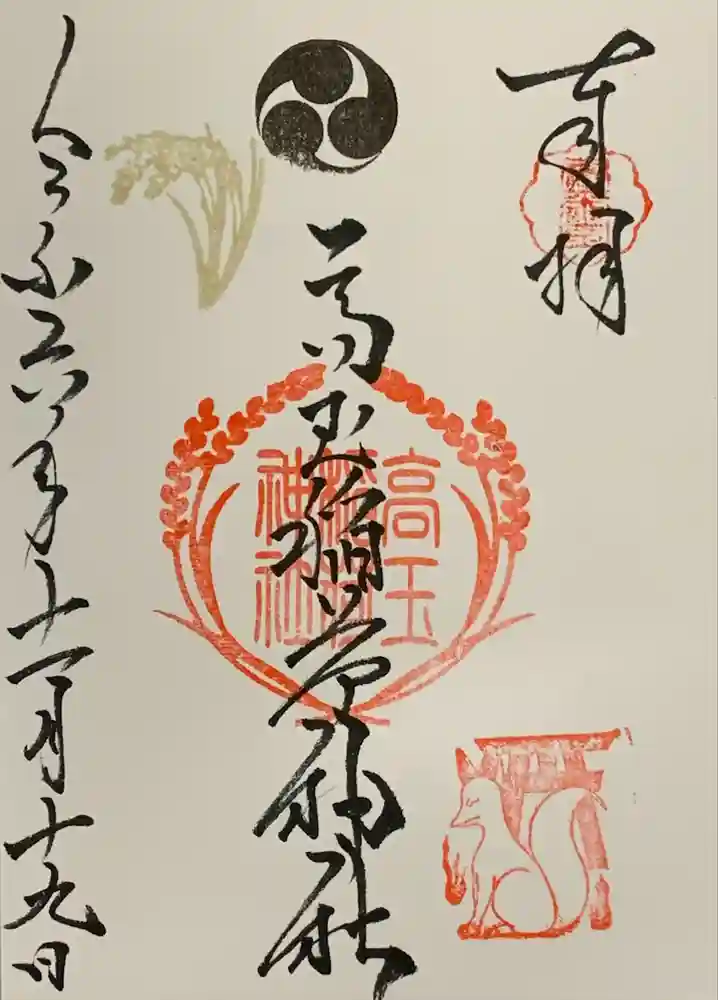 奉拝
高玉稲荷神社
高玉
稲荷
神社
令和六年十一月十九日